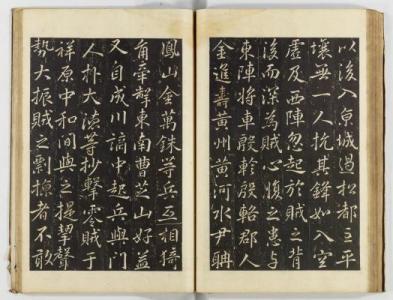 以後入京城過松都之平
壤無一人抗其鋒如入空
虛及西陣忽起於賊之背
後而深為賊心腹之患与
東陣將車殷軫殷輅郡人
金進壽黃州黃河水尹聃
鳳山金萬銖等兵互相猗
角牽掣東南曹芝山好益
又自成川謫中起兵與門
人朴大德等抄擊零賊于
祥原中和間與之提挈聲
勢大振賊之剽掠者不敢